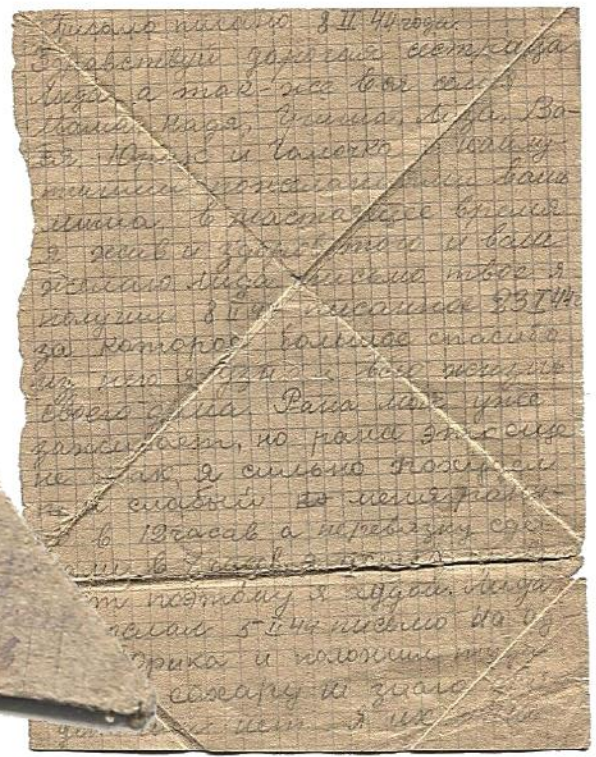 Письмо писано 8 II 44 года.
Здравствуй дорогая сестрица
Лида а так-же вся семья
Мама, Надя, Лиза, Ва-
ся Юрик и Галочка с
пожеланиями вашь
миша. в настаящее время
я жив и здоров того и вам
желаю Лида письмо твое я
получил 8 II 44 писанное 23 I 44г
за которое большое спасибо
из него я узнал всю жизнь
своего дома. Рана моя уже
заживает, но рана это еще
не так, я сильно похудел
и слабый меня ранили
в 12 часов а перевязку сде
лали в
поэтому я худой. Лида
послал 5 II 44 письмо на
Юрика и положил
сахару не знаю
нет Я их